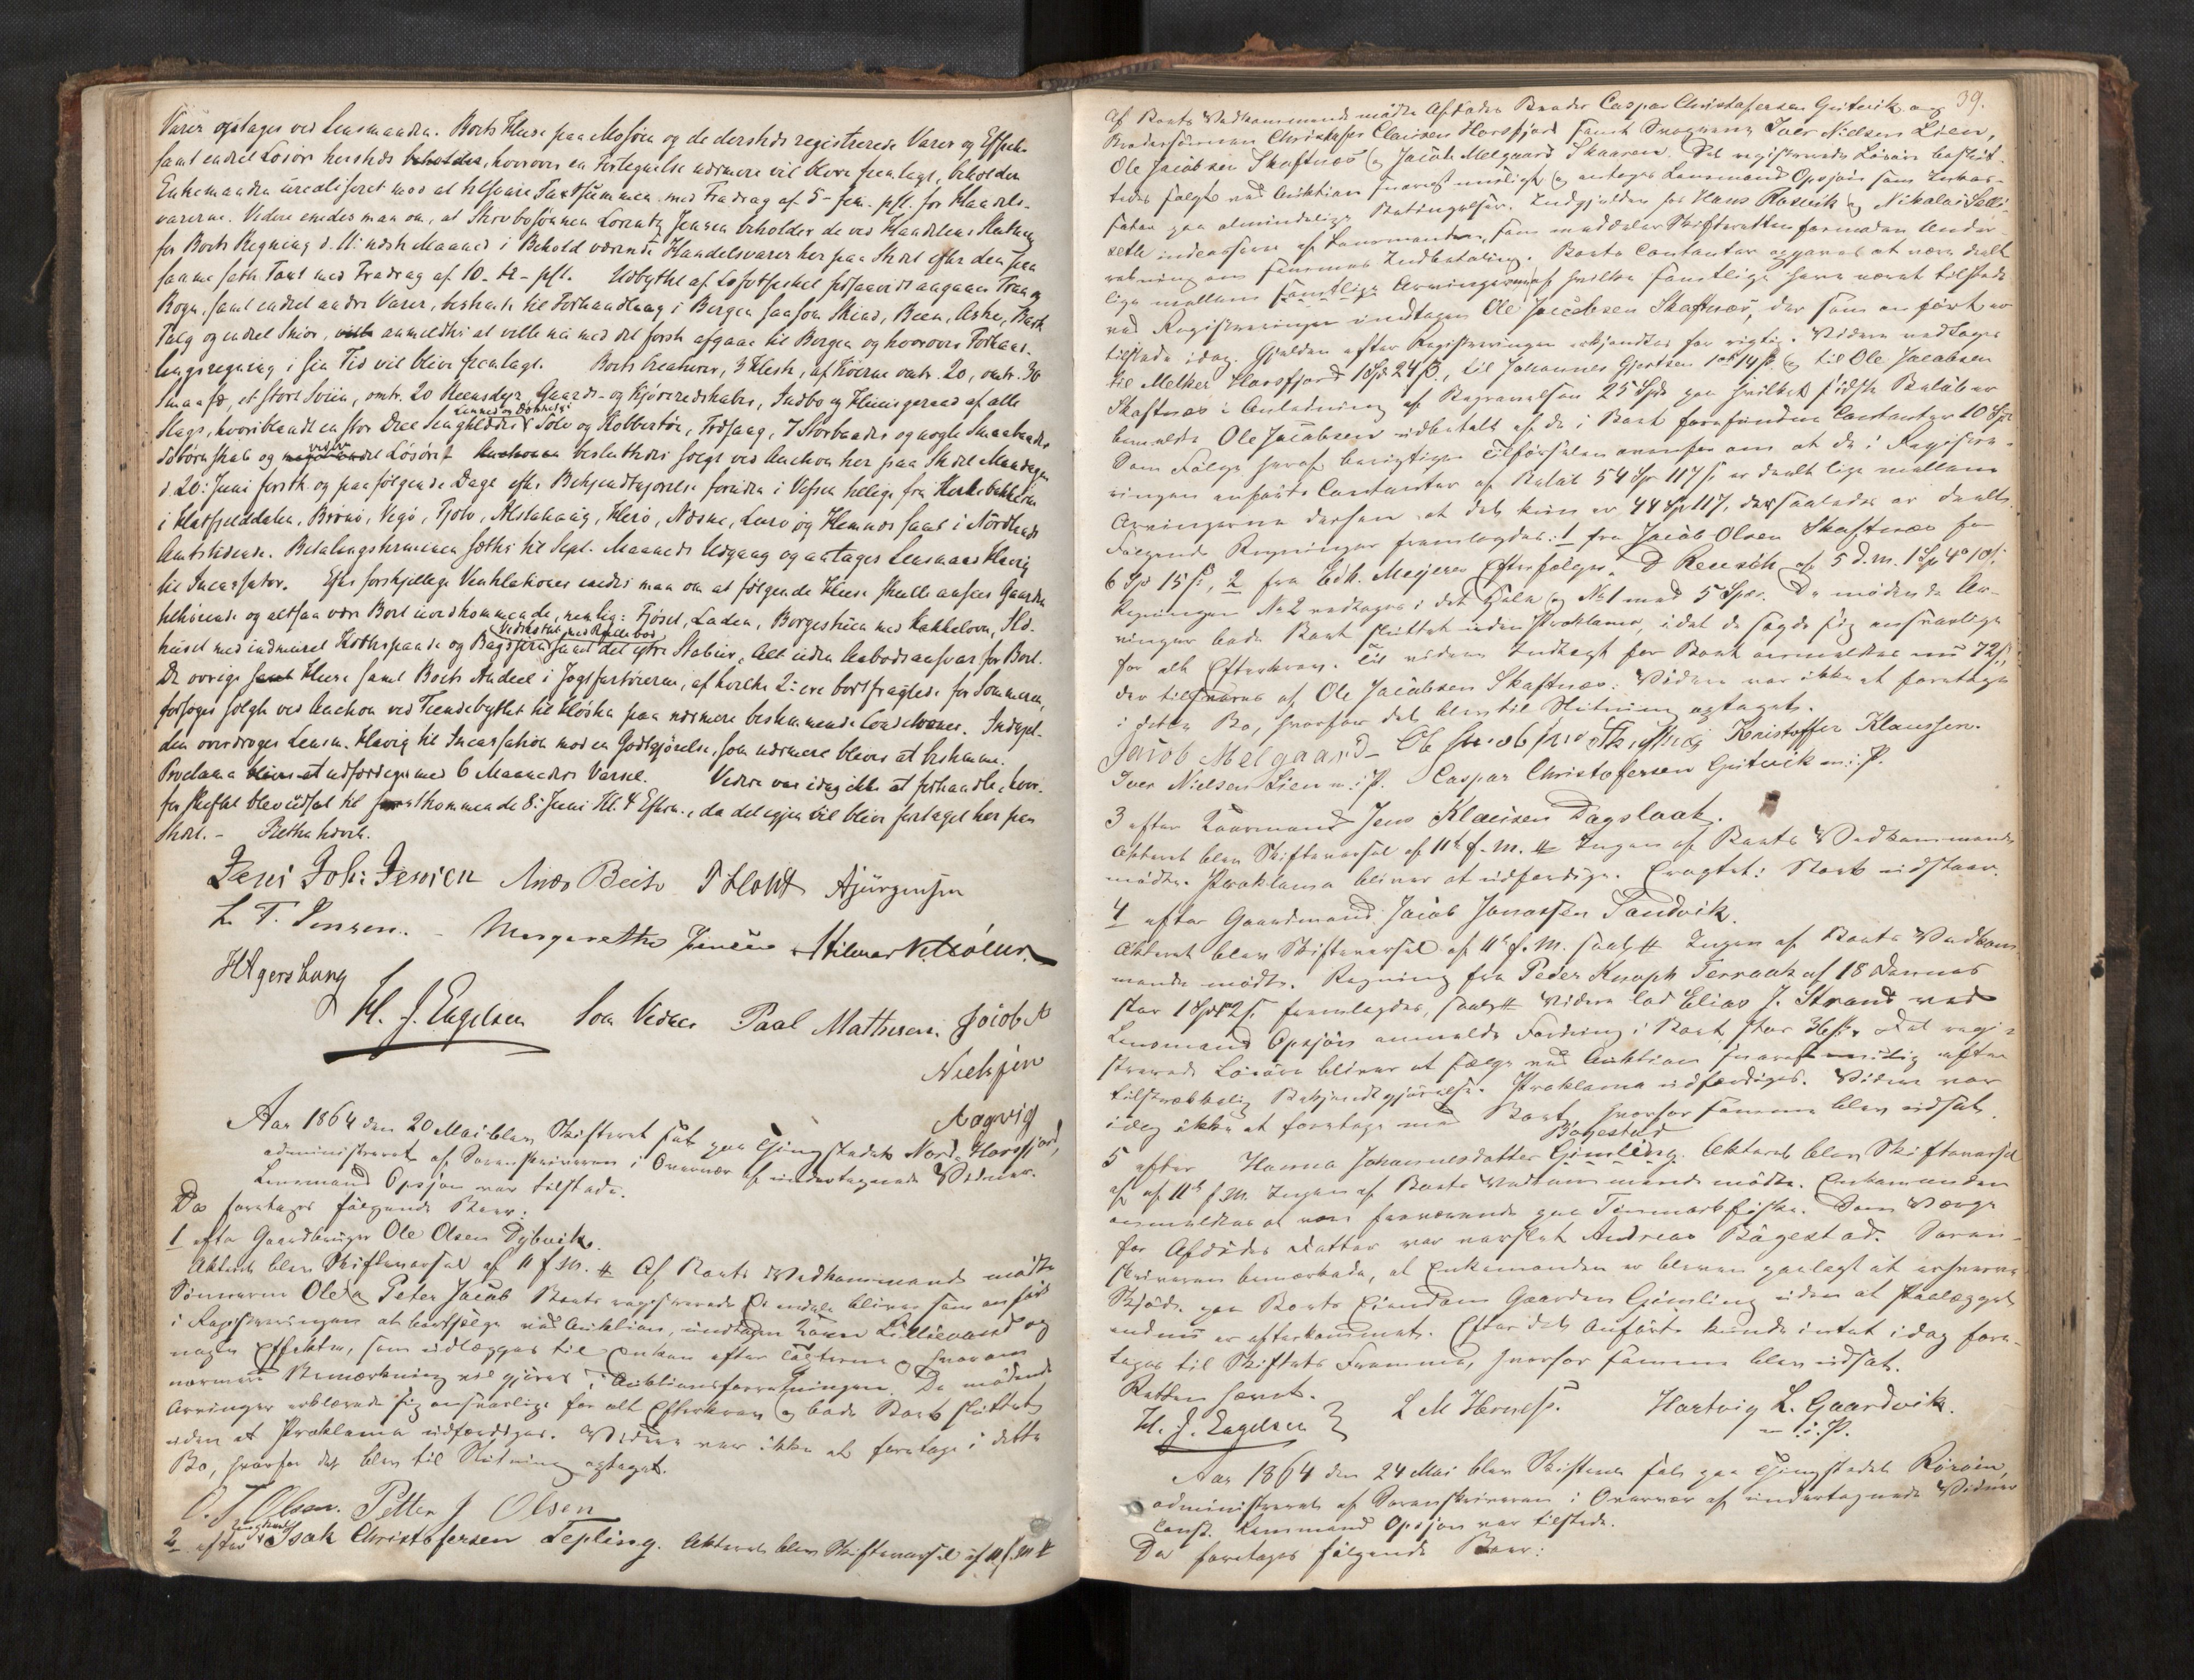 Varer optages ved Lensmanden. Boets Huse paa Mosøen og de dersteds registrerede Varer og Effek-
samt endeel Løsøre hersteds beholdes, hvorover en Fortegnelse nærmere vil blive fremlagt, beholder
Enkemanden urealiseret mod at tilsvare Taxtsummen med Fradrag af 5 - fem - pCt. for Handels-
varerne. Videre enedes man om, at Skrivbysønnen Lorentz Jensen beholder de ved Handelens Slutning
for Boets Regning d. U: næste Maaned i Behold værende Handelsvarer her paa Stedet efter den paa
samme satte Taxt med Fradrag af 10 - ti - pCt. Udbyttet af Lofotfisket forsaavidt angaaer Tran og
Rogn, samt endeel andre Varer, bestemte til Forhandling i Bergen saasom Skind, Been, Aske, Bark
Talg og endeel Smør, anmeldtes at ville nu med det første afgaae til Bergen og hvorover Forhand-
lingsregning i sin Tid vil blive fremlagt. Boets Creaturer, 3 Heste, af Køerne omtr. 20, omtr. 30
Smaafæ, et stort Sviin, omtr. 20 Reensdyr, Gaards- og Kjøreredskaber, Indbo og Huusgeraad af alle
Slags, hvoriblandt en stor Deel Sengklæder, Linned og Dækketøi Sølv og Kobbertøi, Træfang, 7 Storbaade og nogle Smaabaade
Søbornskab og videre Løsøre besluttedes solgt ved Auction her paa Stedet Mandagen
d. 20: Juni førstk. og paafølgende Dage efter Bekjendtgjørelse foruden i Vefsen tillige fra Kirkebakken
i Hatfjelddalen, Brønø, Vegø, Tjøtø, Alstahaug, Herø, Næsne, Lurø og Hemnes samt i Nordlands
Amtstidende. Betalingsterminen sættes til Sept. Maaneds Udgang og antages Lensmand Havig
til Incassator. Efter forskjellige Ventilationer enedes man om at følgende Huse skulle ansees Gaarden
tilhørende og altsaa være Boet uvedkommende, nemlig: Fjøset, Laden, Borgestuen med Kakkelovn, Ild-
huset med indmuret Kothspande og Bagsteen Vedskiul med Rullebod samt det ytre Stabur, Alt uden Aabodsansvar for Boet.
De øvrige Huse samt Boets Andeel i Jægtfartøierne, af hvilke 2: ere bortfragtede for Sommeren,
forsøges solgte ved Auction ved Tiendebyttet til Høsten paa nærmere bestemmende Conditioner. Indgjel-
den overdroges Lensm. Havig til Incassation mod en Godtgjørelse, som nærmere bliver at bestemme.
Proclama bliver at udfærdige med 6 Maaneders Varsel. Videre var idag ikke at forhandle, hvor-
for Skiftet blev udsat til førstkommende 8: Juni Kl. 4 Efterm., da det igjen vil blive foretaget her paa
Stedet. - Retten hævet.
Jens Joh: Jensen Anders Beck P Holst AJürgensen
L. T. Jensen. - Margarethe Jensen Hilmar
HAgersborg
H. J. Engelsen Paal Mathisen. Jacob A
Nielsen
Aagvig
Aar 1864 den 20 Mai blev Skifteret sat paa Thingstedet Nord-Horsfjord,
administreret af Sorenskriveren i Overvær af undertegnede Vidner.
Lensmand Opsjøn var tilstede.
Da foretoges følgende Boer:
1 efter Gaardbruger Ole Olsen Dybvik.
Akteret blev Skiftevarsel af 11 f. M. # Af Boets Vedkommende mødte
Sønnerne Ole og Peter Jacob Boets registrerede Eiendele bliver som anført
i Registreringen at bortsælge ved Auktion, undtagen Koen Lillievand og
nogle Effekter, som udlægges til Enken efter Taxterne og hvorom
nærmere Bemærkning vil gjøres i Auktionsforretningen. De mødende
Arvinger erklærede sig ansvarlige for alt Efterkrav og bade Boet sluttet
uden at Proklama udfærdiges. Videre var ikke at foretage i dette
Bo, hvorfor det blev til Slutning optaget.
O. J. Olsen. Petter J Olsen
2 efter Ungkarl Isak Christofersen Tepling. Akteret blev Skiftevarsel af 11 f. M #
39.
Af Boets Vedkommende mødte Afdødes Broder Caspar Christofersen Gutvik og
Brodersønnen Christoffer Clausen Horsfjord samt Svogrene Iver Nielsen Lien,
Ole Jacobsen Skaftnæs og Jacob Melgaard Skaaren. Det registrerede Løsøre beslut-
tedes solgt ved Auktion snarest muligt og antoges Lensmand Opsjøn som Inkas-
sator paa almindelige Betingelser. Indgjælden hos Hans Rosvik og Nikolai Salli-
seth indcasseres af Lensmanden, som meddeler Skifteretten fornøden Under-
retning om Summens Indbetaling. Boets Contanter opgaves at være deelt
lige mellem samtlige Arvinger, af hvilke samtlige have været tilstede
ved Registreringen undtagen Ole Jacobsen Skaftnæs, der som anført er
tilstede idag. Gjælden efter Registreringen erkjendtes for rigtig. Videre vedtoges
til Melker Horsfjord 1 Spd 24 ß, til Johannes Gjertsen 1 ort 14 ß og til Ole Jacobsen
Skaftnæs i Anledning af Begravelsen 25 Spd paa hvilket sidste Beløb er
bemeldte Ole Jacobsen udbetalt af de i Boet forefundne Contanter 10 Spd
Som Følge heraf berigtiges Tilførselen ovenfor om at de i Registre-
ringen anførte Contanter af Beløb 54 Spd 117 ß er deelt lige mellem
Arvingerne derhen at det kun er 44 Spd 117, der saaledes er deelt.
Følgende Regninger fremlagdes: 1 fra Jacob Olsen Skaftnæs for
6 Spd 15 ß, 2 fra Edk. Meyeres Efterfølger D Reusch af 5 d. M. 1 Spd 4 ort 10 ß.
Regningen No 2 vedtoges i det Hele og No 1 med 5 Spd. De mødende Ar-
vinger bade Boet sluttet uden Proklama, idet de sagde sig ansvarlige
for alt Efterkrav. Til videre Indtægt for Boet anmeldtes nu 72 ß,
der tilsvares af Ole Jacobsen Skaftnæs. Videre var ikke at foretage
i dette Bo, hvorfor det blev til Slutning optaget.
Jacob Melgaard - Ole Jacobsen Skaftnæs Kristoffer Klaussen.
Iver Nielsen Lien m. i. P. Caspar Christofersen Gutvik m. i. P.
3 efter Kaarmand Jens Klausen Dagslaat.
Akteret blev Skiftevarsel af 11te f. M. # Ingen af Boets Vedkommende
mødte. Proklama bliver at udfærdige. Eragtet: Boet udstaar.
4 efter Gaardmand Jacob Jonassen Sandvik.
Akteret blev Skiftevarsel af 11te f. M. saal. # Ingen af Boets Vedkom-
mende mødte. Regning fra Peder Knoph Terraak af 18 dennes
stor 1 Spd 2 ß fremlagdes, saal. # Videre lod Elias J. Strand ved
Lensmand Opsjøn anmelde Fordring i Boet stor 36 ß. Det regi-
strerede Løsøre bliver at sælge ved Auktion snarest mulig efter
tilstrækkelig Bekjendtgjørelse. Proklama udfærdiges. Videre var
idag ikke at foretage med Boet, hvorfor samme blev udsat.
5 efter Hanna Johannesdatter Gimling Bøgestad. Akteret blev Skiftevarsel
af 11te f. M. Ingen af Boets Vedkommende mødte. Enkemanden
anmeldtes at være fraværende paa Finmarksfiske. Som Værge
for Afdødes Datter var varslet Andreas Bøgestad. Soren-
skriveren bemærkede, at Enkemanden er bleven paalagt at erhverve
Skjøde paa Boets Eiendom Gaarden Gimling uden at Paalægget
endnu er efterkommet. Efter det Anførte kunde intet idag fore-
tages til Skiftets Fremme, hvorfor samme blev udsat.
Retten hævet.
H. J. Engelsen L M Horness. Hartvig L. Gaardvik.
m. i. P.
Aar 1864 den 24 Mai blev Skifteret sat paa Thingstedet Rørøen,
administreret af Sorenskriveren i Overvær af undertegnede Vidner
Const. Lensmand Opsjøn var tilstede.
Da foretoges følgende Boer: